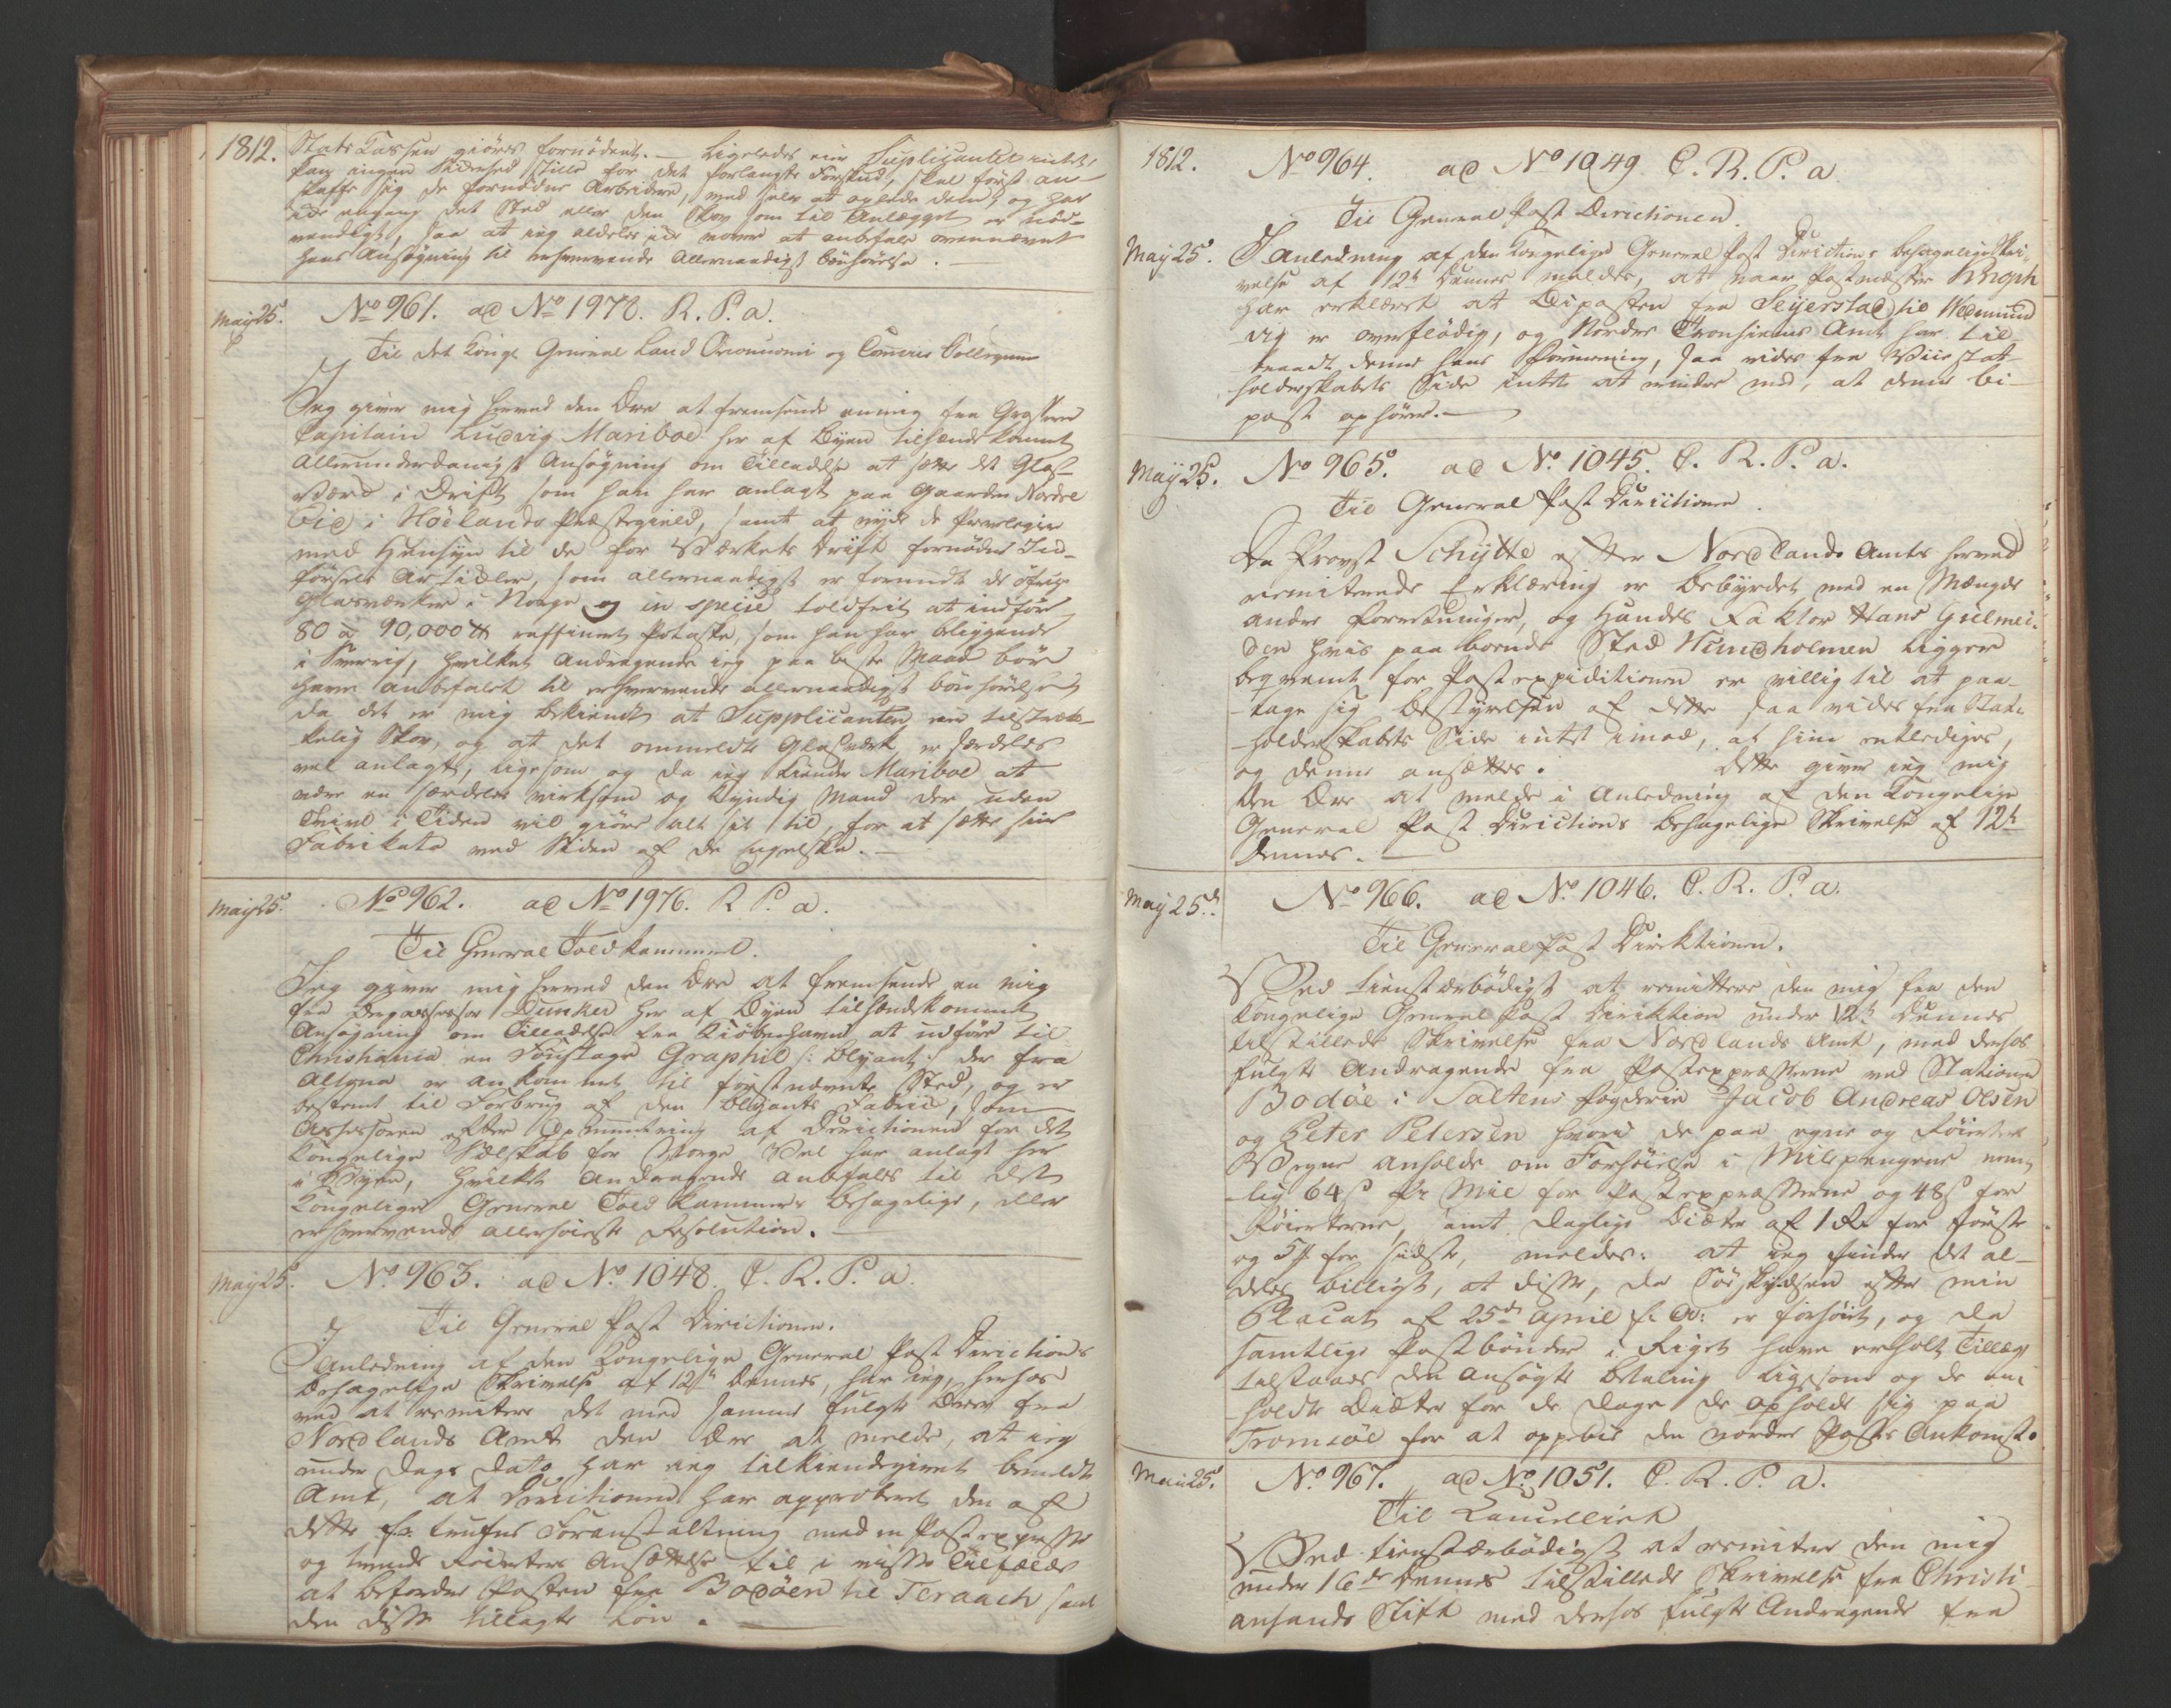 1812.
StatsKassen giøres fornødent. — Ligeledes eier Supplicanten intet,
kan ingen Sikkerhed stille for det forlangte Forskud, skal først an-
skaffe sig de fornødne Arbeidere, med selv at oplede dem, og har
ikke engang det Sted eller den Skov som til Anlægget er nød-
vendigt, saa at jeg aldeles ikke vover at anbefale ovennævnt
hans Ansøgning til erhvervende Allernaadigst Bønhørelse. —
May 25. No 961. ad No 1978. R. P. a.
Til det Kongl General Land Oeconomi og Commerce Collegium
Jeg giver mig herved den Ære at fremsende en mig fra
Capitain Ludvig Mariboe her af Byen tilhændekommet
allerunderdanigst Ansøgning om Tilladelse at sætte det Glas-
Værk i Drift som han har anlagt paa Gaarden Nordre
Eid i Høelands Præstegield, samt at nyde de Privilegier
med Hensyn til de for Værkets Drift fornødne Ind-
førsels Artikler, som allernaadigst er forundt de øvrige
Glasværker i Norge og in specie toldfrit at indføre
80 à 90,000 ℔ raffineret Potaske, som han har beliggende
i Sverrig, hvilket Andragende jeg paa beste Maade bør
have anbefalet til erhvervende allernaadigst bønhørelse
da det er mig bekiendt at Supplicanten eier tilstræk-
kelig Skov, og at det ommeldte Glasværk er særdeles
vel anlagt, ligesom og da jeg kiender Mariboe at
være en særdeles virksom og kyndig Mand der uden
Tvivl i Tiden vil giøre alt sit til, for at sætte sine
Fabrikata ved Siden af de engelske. —
May 25. No 962. ad No 1976. R P. a.
Til General Toldkammeret.
Jeg giver mig herved den Ære at fremsende en mig
fra Bergassessor Dunker her af Byen tilhændekommet
Ansøgning om Tilladelse fra Kiøbenhavn at udføre til
Christiania en Foustage Graphit /: Blyant :/ der fra
Altona er ankommet til førstnævnte Sted, og er
bestemt til Forbrug af den Blyants Fabric, som
Assessoren efter Opmuntring af Directionen for det
Kongelige Selskab for Norges Vel har anlagt her
i Byen, hvilket Andragende anbefales til det
Kongelige General Told Kammers behagelige, eller
erhvervende allerhøieste Resolution. —
May 25. No 963. ad No 1048. C. R. P. a.
Til General Post Directionen.
I Anledning af den Kongelige General Post Directions
behagelige Skrivelse af 12te dennes, har jeg, herhos
ved at remittere det med samme fulgte Brev fra
Nordlands Amt den Ære at melde, at jeg
under Dags Dato har jeg tilkiendegivet bemeldte
Amt, at Directionen har approberet den af
dette trufne Foranstaltning med en Postexpresse
og tvende Føierteres Ansættelse til i visse Tilfælde
at befordre Posten fra Bodøen til Teraach samt
den disse tillagte Løn. —
1812. No 964. ad No 1049. C. R. P. a
Til General Post Directionen.
May 25. I Anledning af den Kongelige General Post Directions behagelige Skri-
velse af 12te dennes meldes, at naar Postmester Knoph
har erklæret at Biposten fra Seyerstad til Wedemund
vig er overflødig, og Nordre Tronhiems Amt har til-
traadt denne hans Formening, saa vides fra Viicestat-
holderskabets Side intet at erindre mod, at denne bi-
post ophører. —
May 25. No 965. ad No. 1045. C. R. P. a.
Til General Post Directionen.
Da Provst Schytte efter Nordlands Amts herved
remitterede Erklæring er bebyrdet med en Mængde
andre Forretninger, og Handels Faktor Hans Gielmei-
den hvis paa boende Sted Hundholmen ligger
beqvemt for Postexpiditionen er villig til at paa-
tage sig Bestyrelsen af dette saa vides fra Stat-
holderskabets Side intet imod, at hiin entlediges,
og denne ansættes. Dette giver jeg mig
den Ære at melde i Anledning af den Kongelige
General Post Directions behagelige Skrivelse af 12te
dennes. —
May 25de No 966. ad No. 1046. C. R. P. a.
Til General Post Direktionen.
Ved tienstærbødigst at remittere den mig fra den
Kongelige General Post Direktion under 12te dennes
tilstillede Skrivelse fra Nordlands Amt, med derhos
fulgte Andragende fra Postexpresserne ved Stationen
Bodøe i Saltens Fogderie Jacob Andreas Olsen
og Peter Petersen hvori de paa egne og Føierternes
Vegne anholde om Forhøielse i Milepengene nem-
lig 64 s pr Mile for Postexpresserne og 48 s for
Føierterne, samt daglige Diæter af 1 Rd for første
og 5 # for sidste, meldes: at jeg finder det al-
deles billigt, at disse, da Søeskydsen efter min
Placat af 25de April f. A: er forhøiet, og da
samtlige Postbønder i Riget have erholdt Tillæg,
tilstaaes den ansøgte betaling ligesom og de an-
holdte Diæter for de Dage de opholde sig paa
Tromsøe for at oppebie den nordre Posts Ankomst.
Maii 25. No. 967. ad No. 1051. C. R. P. a.
Til Cancelliet
Ved tienstærbødigst at remittere den mig
under 16de dennes tilstillede Skrivelse fra Christi-
ansands Stift med derhos fulgte Andragende fra